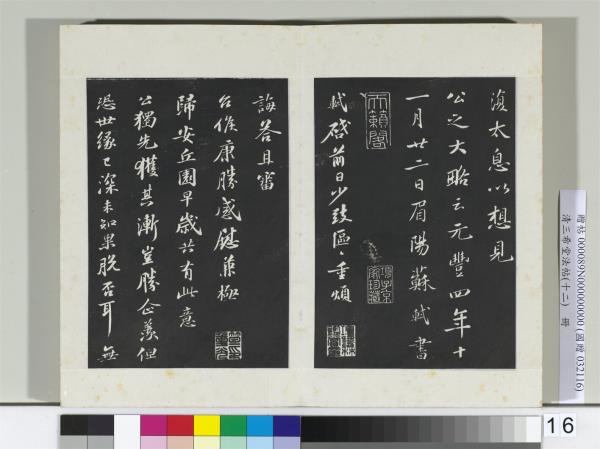 復太息以想見
公之大略云元豐四年十
一月廿二日眉陽蘇軾書
天籟閣
軾啓前日少致區々重煩
誨答且審
台候康勝感慰兼極
歸安丘園早歲共有此意
公獨先獲其漸豈勝企羨但
恐世緣已深未知果脫否耳無
贈帖 000089N000000000 (國贈 032116)
清三希堂法帖(十二) 冊
16